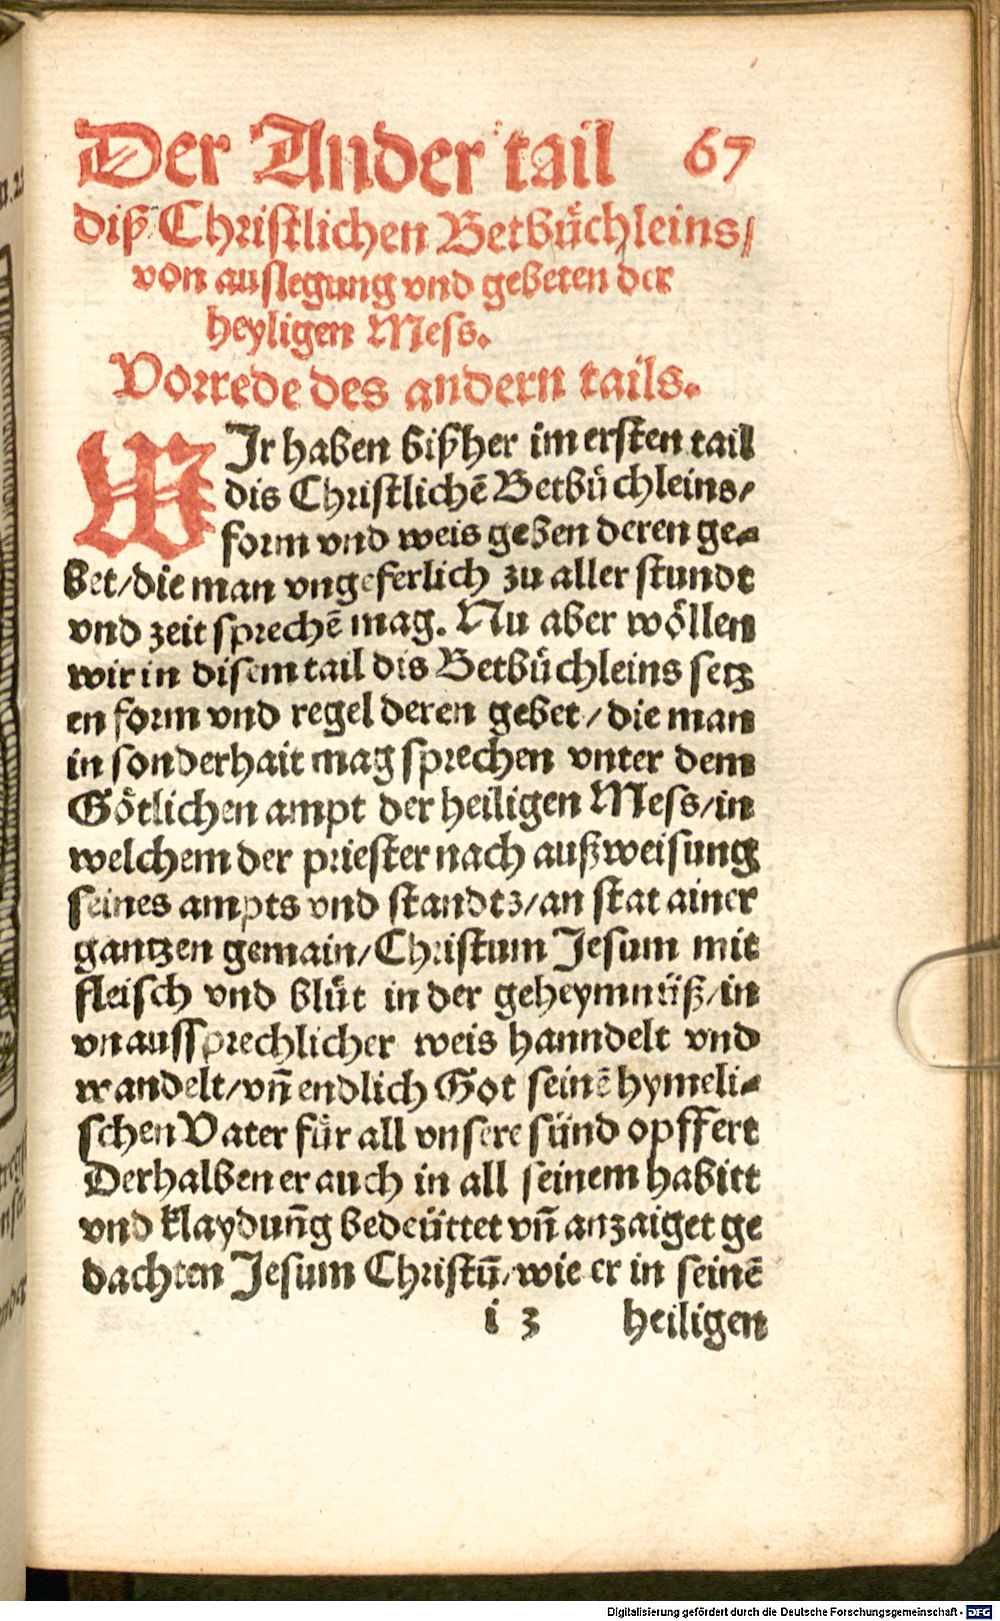 Der Ander tail 67
diß Christlichen Betbüchleins/
von auslegung vnd gebeten der
heyligen Mess.
Vorrede des andern tails.
WIr haben bißher im ersten tail
dis Christlichē Betbüchleins/
form vnd weis geben deren ge-
bet/die man vngeferlich zu aller stundt
vnd zeit sprechē mag. Nu aber wöllen
wir in disem tail dis Betbüchleins setz
en form vnd regel deren gebet/die man
in sonderhait mag sprechen vnter dem
Götlichen ampt der heiligen Mess/in
welchem der priester nach außweisung
seines ampts vnd standtz/an stat ainer
gantzen gemain/Christum Jesum mit
fleisch vnd blüt in der geheymnüß/in
vnaussprechlicher weis hanndelt vnd
wandelt/vn̄ endlich Got seinē hymeli-
schen Vater für all vnsere sünd opffert
Derhalben er auch in all seinem habitt
vnd klaydun̄g bedeüttet vn̄ anzaiget ge
dachten Jesum Christū/wie er in seinē
i 3 heiligen
Digitalisierung gefördert durch die Deutsche Forschungsgemeinschaft - DFG